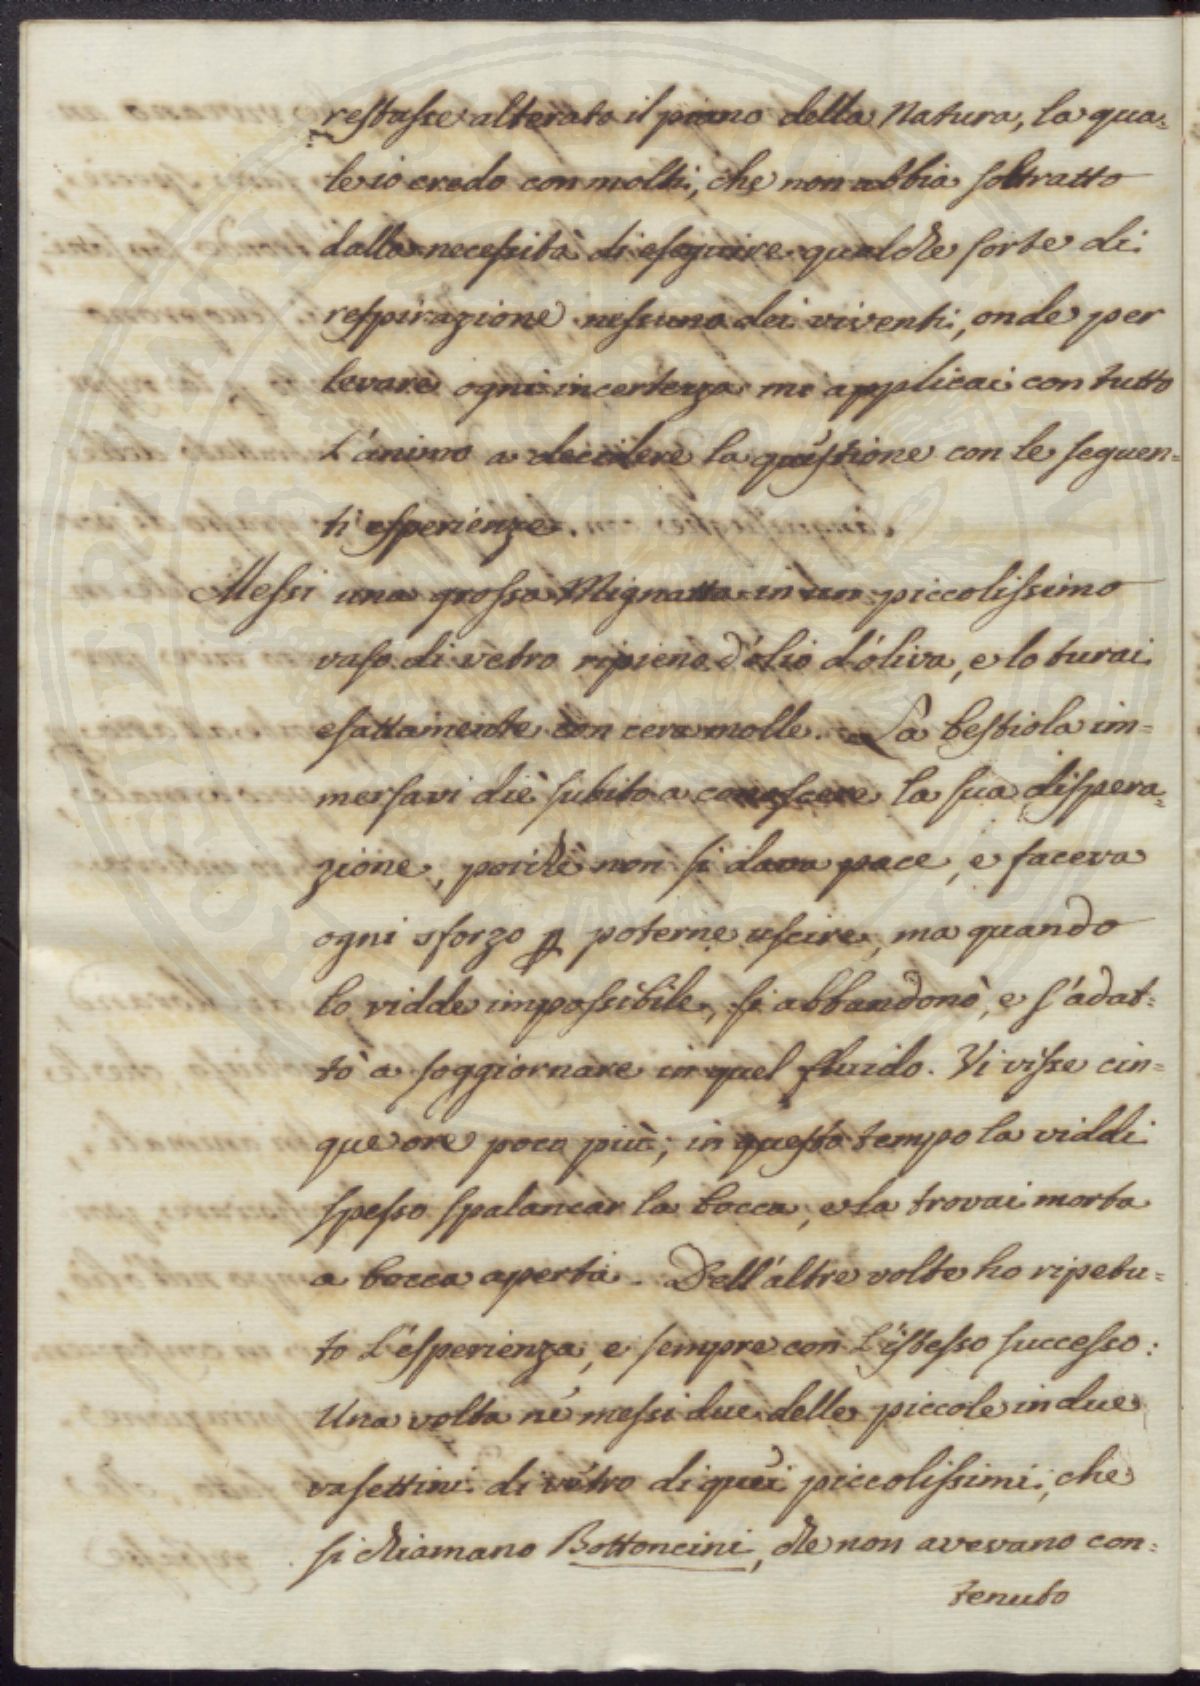 restasse alterato il piano della Natura, la qua=
le io credo con molti, che non abbia soltratto
dalla necessità di eseguire qualche sorte di
respirazione nessuno dei viventi, onde per
levare ogni incertezza mi applicai con tutto
l'animo a decidere la quistione con le seguen=
ti esperienze.
Messi una grossa Mignatta in un piccolissimo
vaso di vetro ripieno d'olio d'oliva, e lo turai
esattamente con cera molle. La bestiola im=
mersavi diè subito a conoscere la sua dispera=
zione, poichè non si dava pace, e faceva
ogni sforzo p poterne uscire, ma quando
lo vidde impossibile, si abbandonò, e s'adat=
tò a soggiornare in quel fluido. Vi visse cin=
que ore poco più; in questo tempo la viddi
spesso spalancar la bocca, e la trovai morta
a bocca aperta. Dell'altre volte ho ripetu=
to l'esperienza, e sempre con l'istesso successo:
Una volta nè messi due delle piccole in due
vasettini di vetro di quei piccolissimi, che
si chiamano Bottoncini, che non avevano con=
tenuto